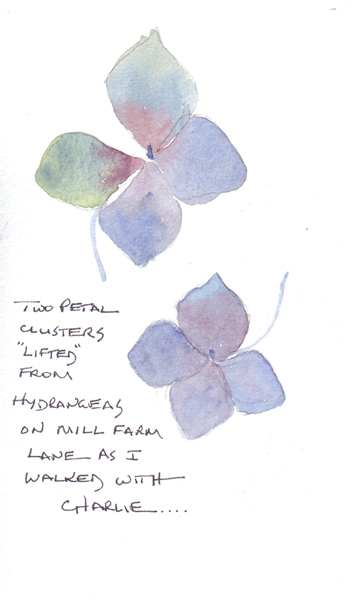 TWO PETAL
CLUSTERS
"LIFTED"
FROM
HYDRANGEAS
ON MILL FARM
LANE AS I
WALKED WITH
CHARLIE....